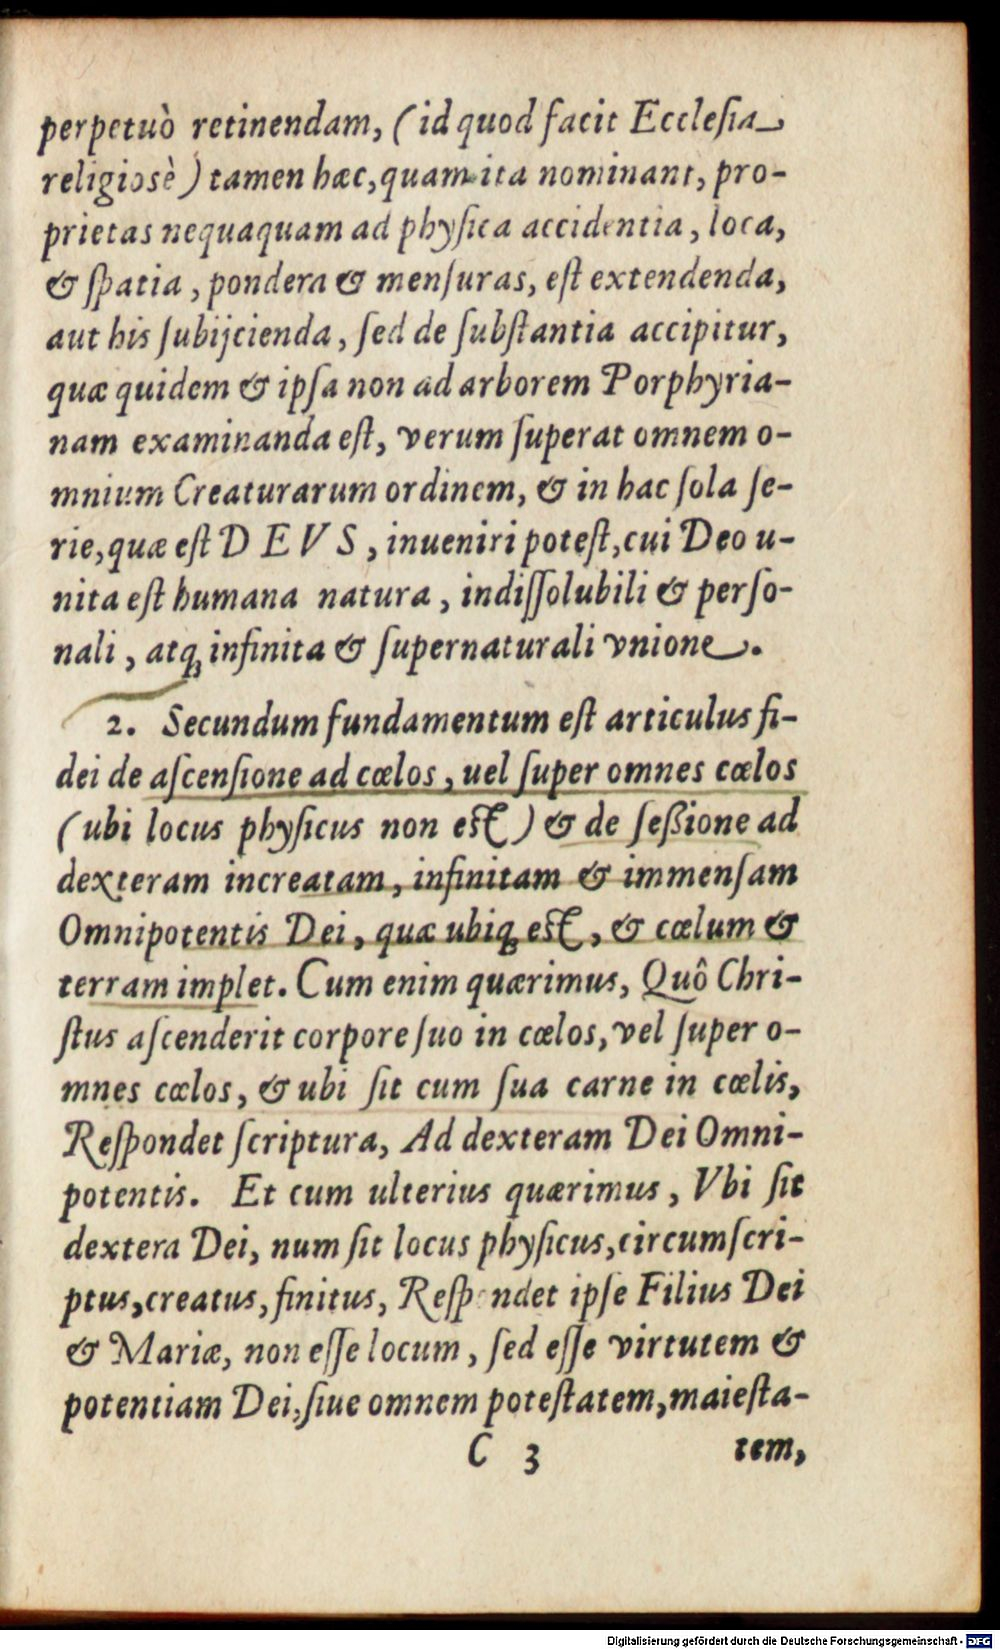 perpetuò retinendam, (id quod facit Ecclesia
religiosè) tamen hæc, quam ita nominant, pro-
prietas nequaquam ad physica accidentia, loca,
& spatia, pondera & mensuras, est extendenda,
aut his subijcienda, sed de substantia accipitur,
quæ quidem & ipsa non ad arborem Porphyria-
nam examinanda est, verum superat omnem o-
mnium Creaturarum ordinem, & in hac sola se-
rie, quæ est DEVS, inueniri potest, cui Deo u-
nita est humana natura, indissolubili & perso-
nali, atq; infinita & supernaturali vnione.
2. Secundum fundamentum est articulus fi-
dei de ascensione ad cœlos, uel super omnes cœlos
(ubi locus physicus non est) & de seßione ad
dexteram increatam, infinitam & immensam
Omnipotentis Dei, quæ ubiq; est, & cœlum &
terram implet. Cum enim quærimus, Quô Chri-
stus ascenderit corpore suo in cœlos, vel super o-
mnes cœlos, & ubi sit cum sua carne in cœlis,
Respondet scriptura, Ad dexteram Dei Omni-
potentis. Et cum ulterius quærimus, Vbi sit
dextera Dei, num sit locus physicus, circumscri-
ptus, creatus, finitus, Respondet ipse Filius Dei
& Mariæ, non esse locum, sed esse virtutem &
potentiam Dei, siue omnem potestatem, maiesta-
C 3 tem,
Digitalisierung gefördert durch die Deutsche Forschungsgemeinschaft - DFG